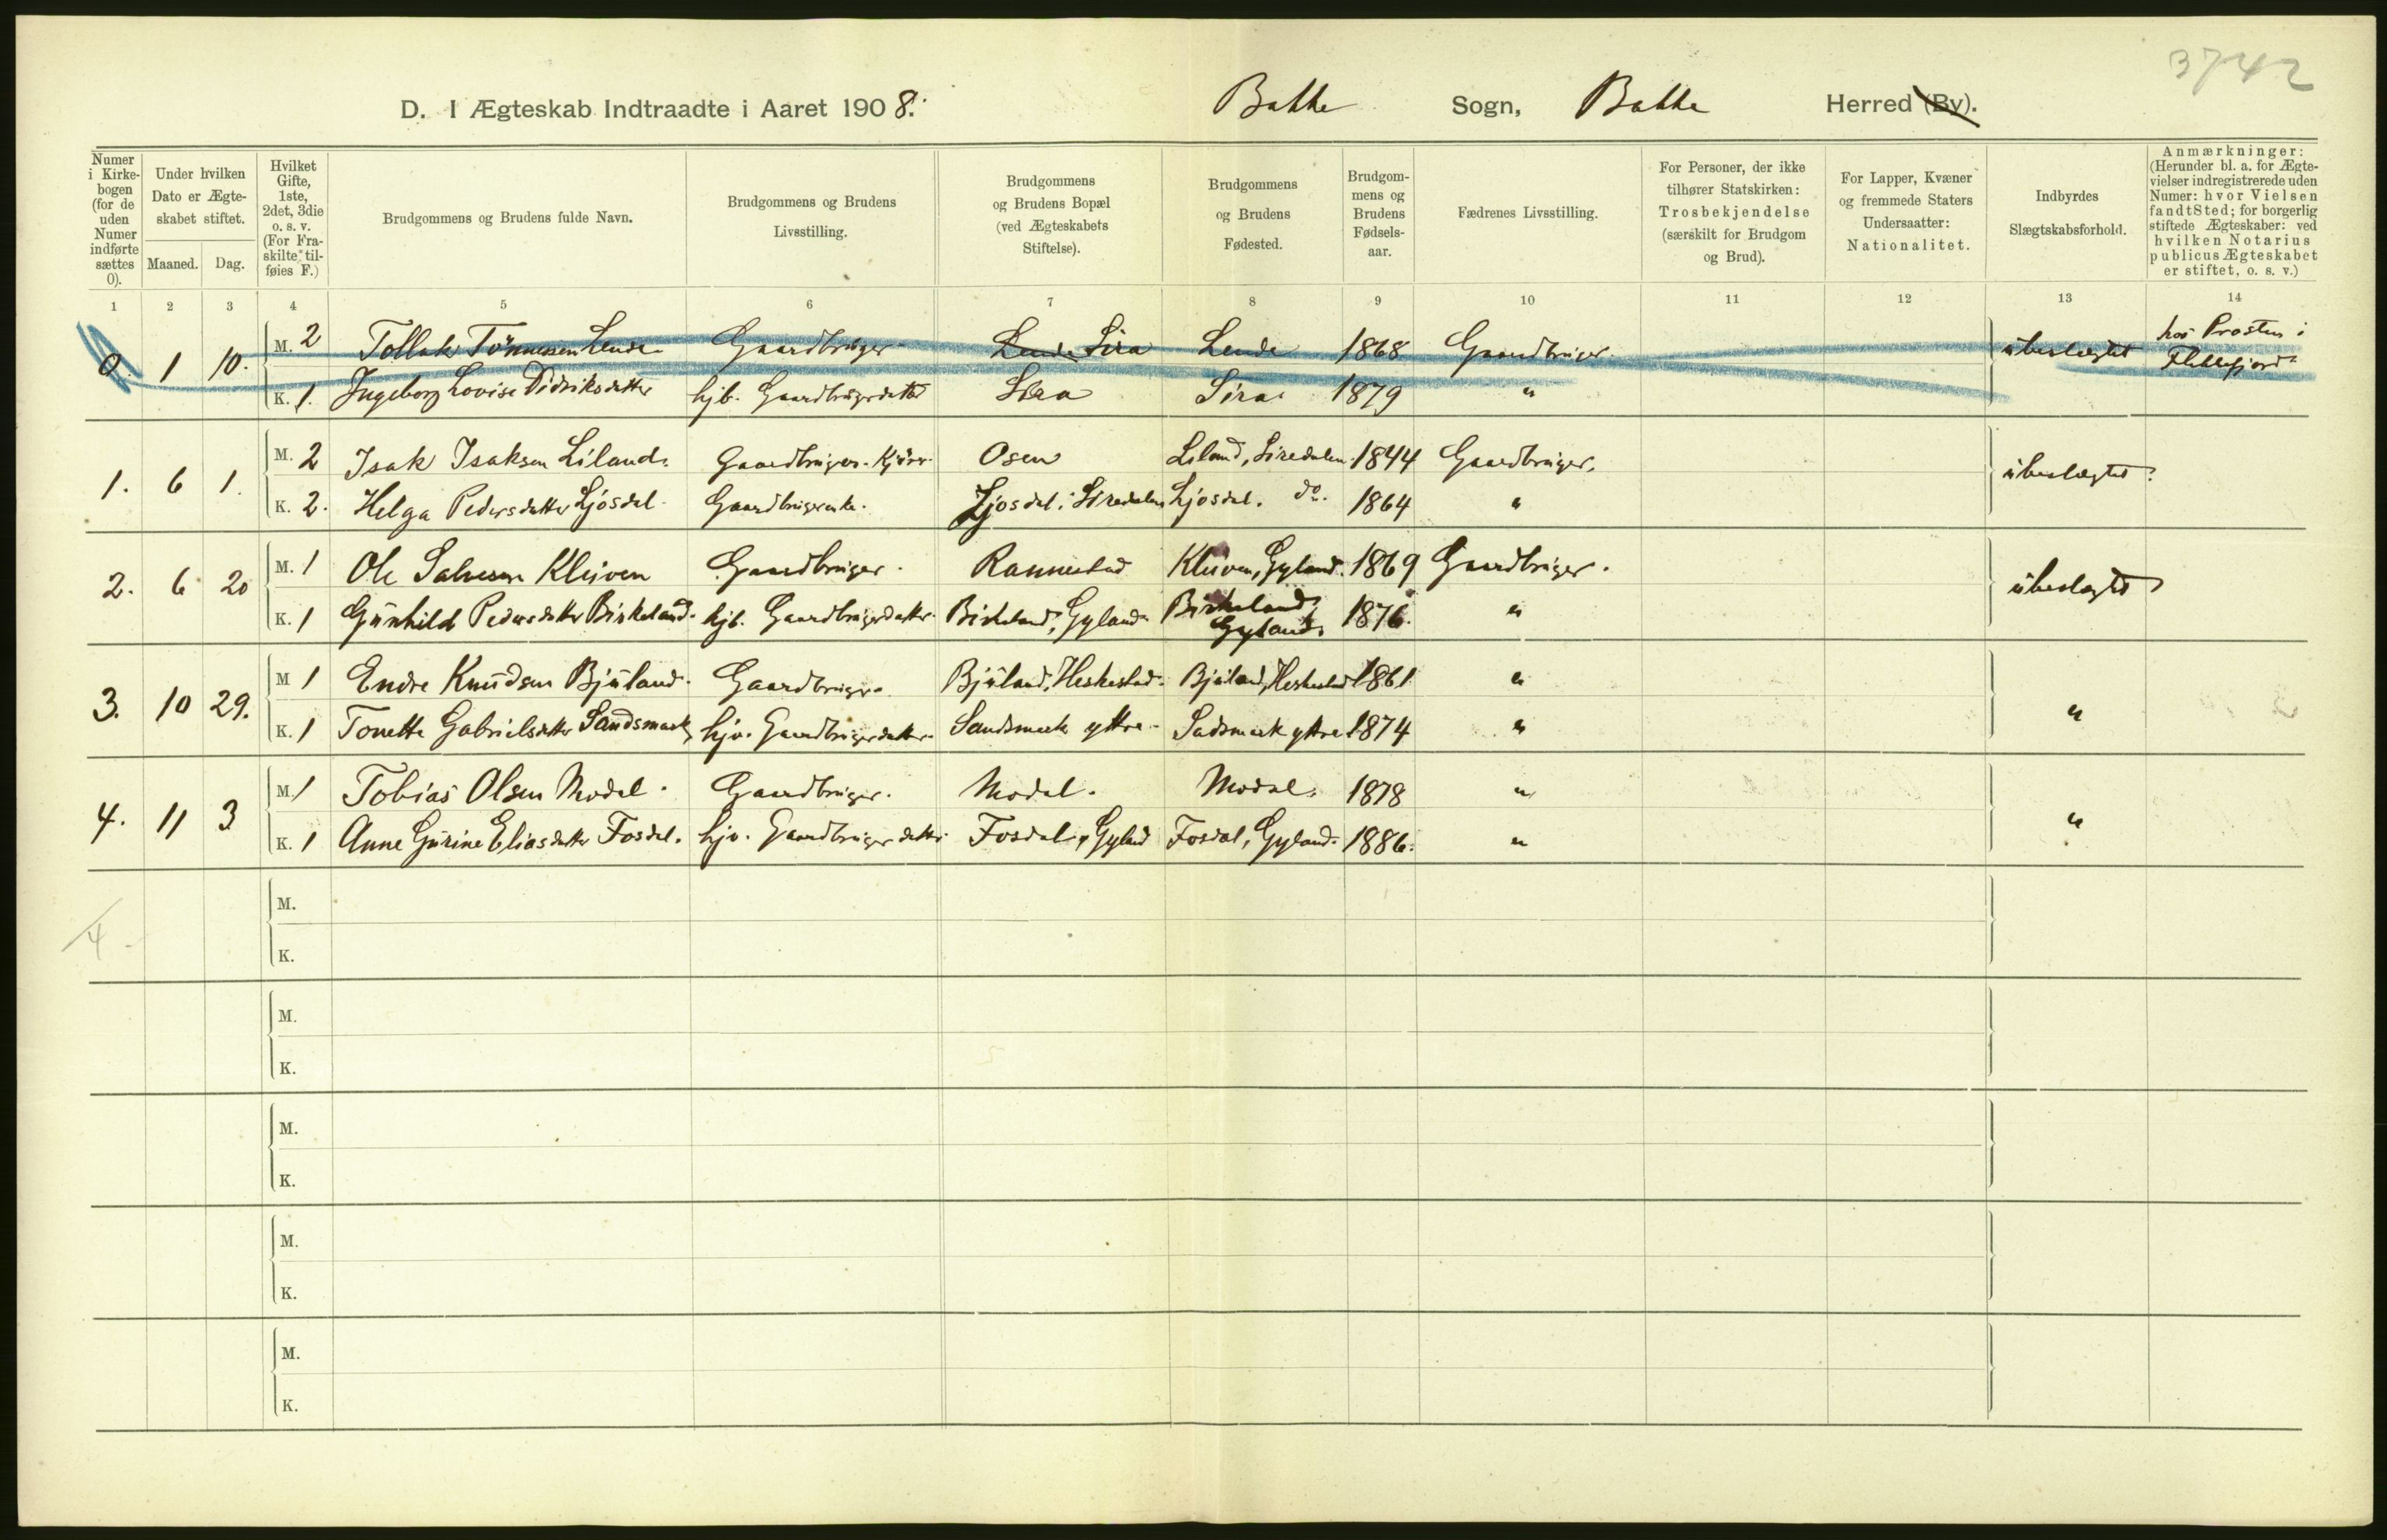 3742
D. I Ægteskab Indtraadte i Aaret 1908. Bakke Sogn, Bakke Herred (By).
Numer i Kirke-bogen (for de uden Numer indførte sættes 0).
Under hvilken Dato er Ægte-skabet stiftet.
Maaned. Dag.
Hvilket Gifte, 1ste, 2det, 3die o. s. v. (For Fra-skilte til-føies F.)
Brudgommens og Brudens fulde Navn.
Brudgommens og Brudens Livsstilling.
Brudgommens og Brudens Bopæl (ved Ægteskabets Stiftelse).
Brudgommens og Brudens Fødested.
Brudgom-mens og Brudens Fødsels-aar.
Fædrenes Livsstilling.
For Personer, der ikke tilhører Statskirken: Trosbekjendelse (særskilt for Brudgom og Brud).
For Lapper, Kvæner og fremmede Staters Undersaatter: Nationalitet.
Indbyrdes Slægtskabsforhold.
Anmærkninger: (Herunder bl. a. for Ægte-vielser indregistrerede uden Numer: hvor Vielsen fandt Sted; for borgerlig stiftede Ægteskaber: ved hvilken Notarius publicus Ægteskabet er stiftet, o. s. v.)
1 2 3 4 5 6 7 8 9 10 11 12 13 14
0. 1 10. M. 2 Tollak Tönnessen Lende Gaardbrüger Lende Sira Lende 1868 Gaardbrüger übeslægtet hos Provsten i Flekkefjord
K. 1. Ingeborg Lovise Didriksdatter hjb. Gaardbrügerdatter Sira Sira 1879 "
1. 6 1. M. 2 Isak Isaksen Liland. Gaardbrüger. Osen Liland, Siredalen. 1844 Gaardbrüger. übeslægted.
K. 2. Helga Pedersdatter Ljosdal Gaardbrügerenke. Ljosdal. Siredalen Ljosdal. do. 1864 "
2. 6 20 M. 1 Ole Salvesen Klüven Gaardbrüger. Rannestad Klüven, Gyland. 1869 Gaardbrüger. übeslægted
K. 1 Günhild Pedersdatter Birkeland. hjb. Gaardbrügerdatter. Birkeland, Gyland. Birkeland, Gyland. 1876. "
3. 10 29. M 1 Endre Knüdsen Bjüland. Gaardbrüger. Bjüland, Heskestad. Bjüland, Heskestad 1861 " "
K. 1 Tonette Gabrielsdatter Sandsmark hjv. Gaardbrügerdatter. Sandsmark yttre. Sadsmark yttre 1874 "
4. 11 3 M. 1 Tobias Olsen Modal. Gaardbrüger. Modal. Modal. 1878 " "
K. 1 Anne Gürine Eliasdatter Fosdal. hjv. Gaardbrügerdatter Fosdal, Gyland Fosdal, Gyland. 1886. "
M.
4
K.
M.
K.
M.
K.
M.
K.
M.
K.